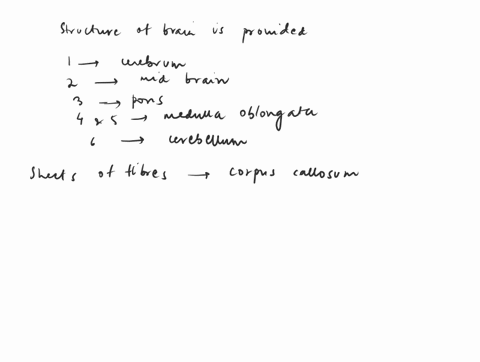 Structure of brain is provided
1 → cerebrum
2 → mid brain
3 → pons
4 & 5 → medulla oblongata
6 → cerebellum
Sheets of fibres → corpus callosum